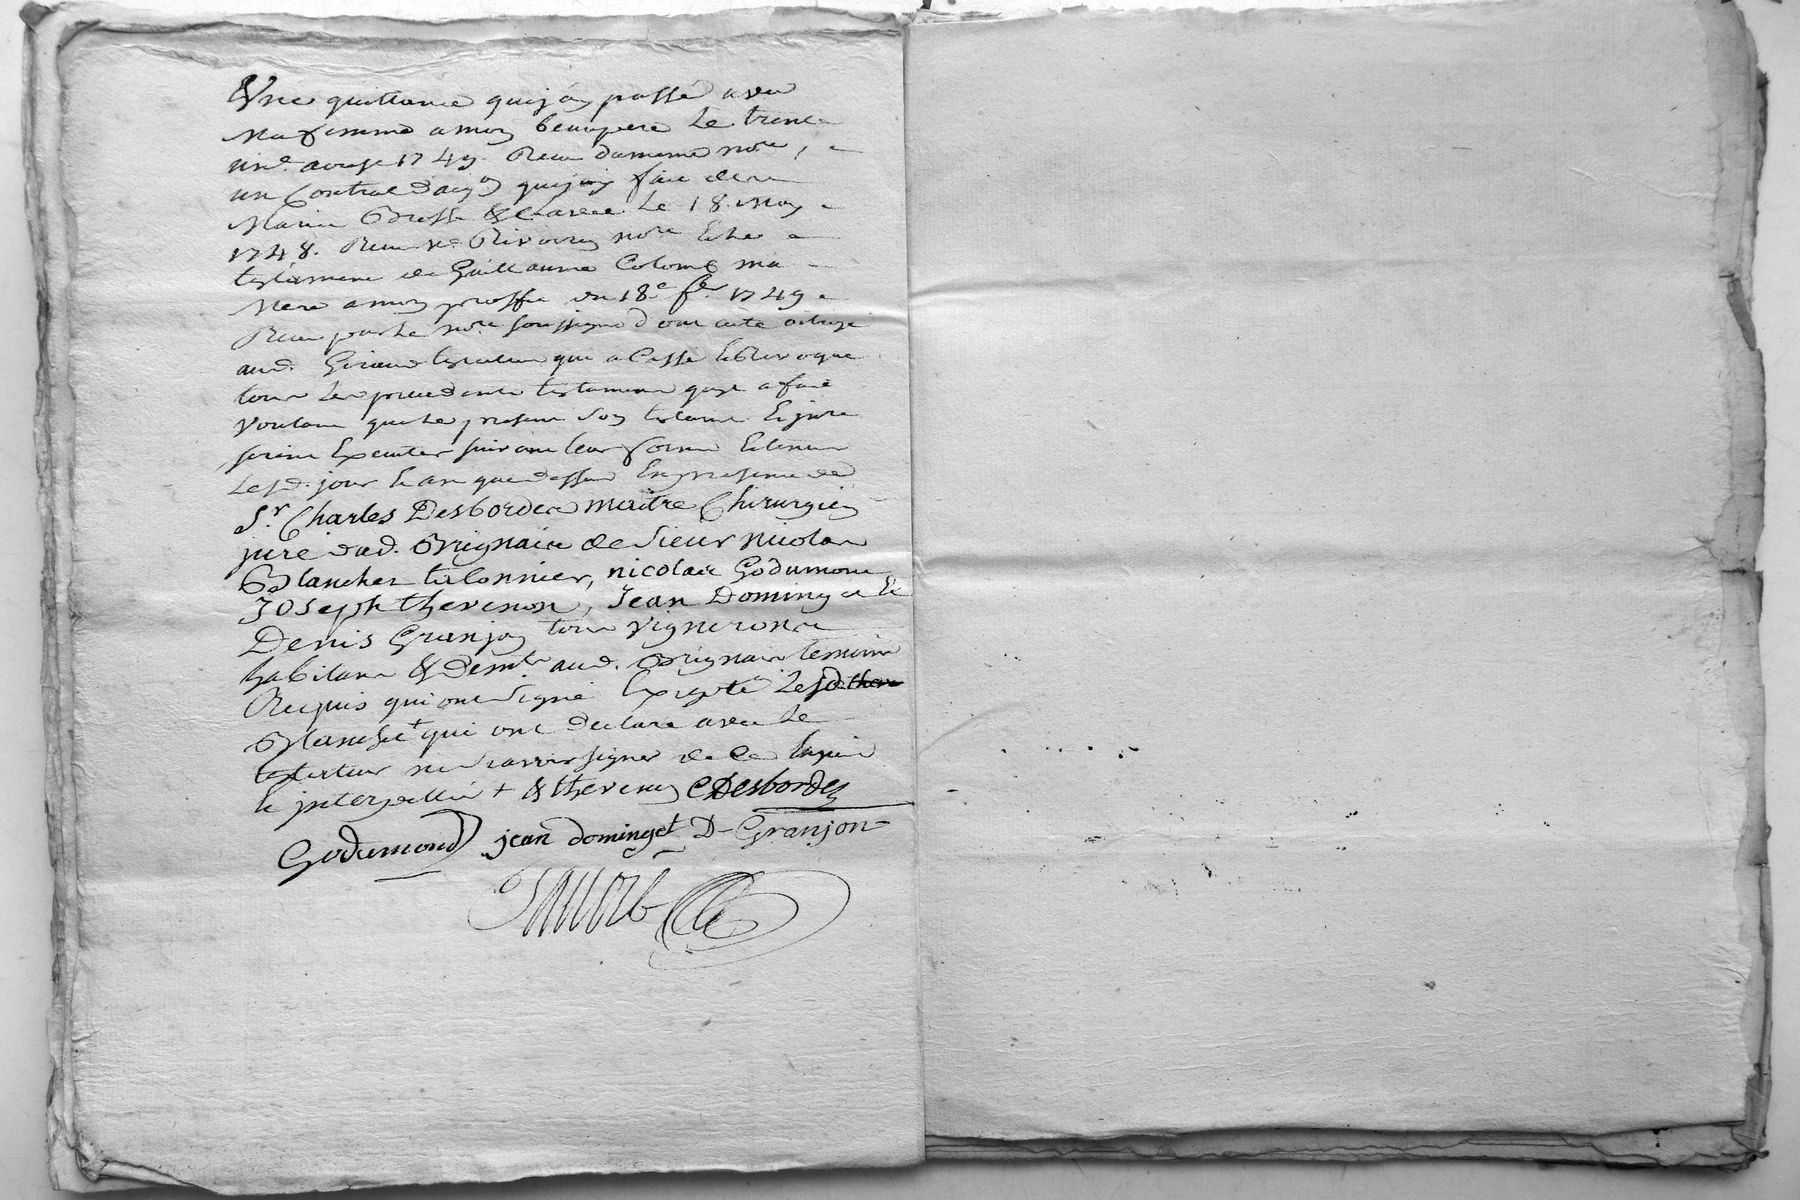 Une quittance que j'ay passé avec
Ma femme a mon beaupere Le trente
un.e 1749. Receu dumeme no.re,
un Contrac d'aq.on que jay fait de
Marie Brosse & Le 18. May
1748. Receu no.re Et le
testament de Guillaume Colomb ma
Mere a mon proffit du 18.e f.er 1749
Receu par Le no.re soussigne dont acte octroyé
aud. Giraud testateur que a Cassé et Revoqué
tous Les precedents testaments quye a fait
Voulant que Le present son testame Et
seront Executes suivant leur forme Et teneur
Lesd. jour Et an que dessus En presence de
S.r Charles Desbordes maitre Chirurgien
juré dud. Brignais de Sieur Nicolas
Blanchet talonnier, nicolas Godumont
Joseph thevenon, Jean Dominget Et
Denis Granjon tous vignerons
habitans & dem.ts aud. Brignais temoins
Requis qui ont signé Excepté Lesd. theve
Blanchet + qui ont declaré avec Le
testateur ne scavoir signer de ce Enquis
Et interpellés + & thevenon CDesbordes
Godumond jean dominget D-Granjon